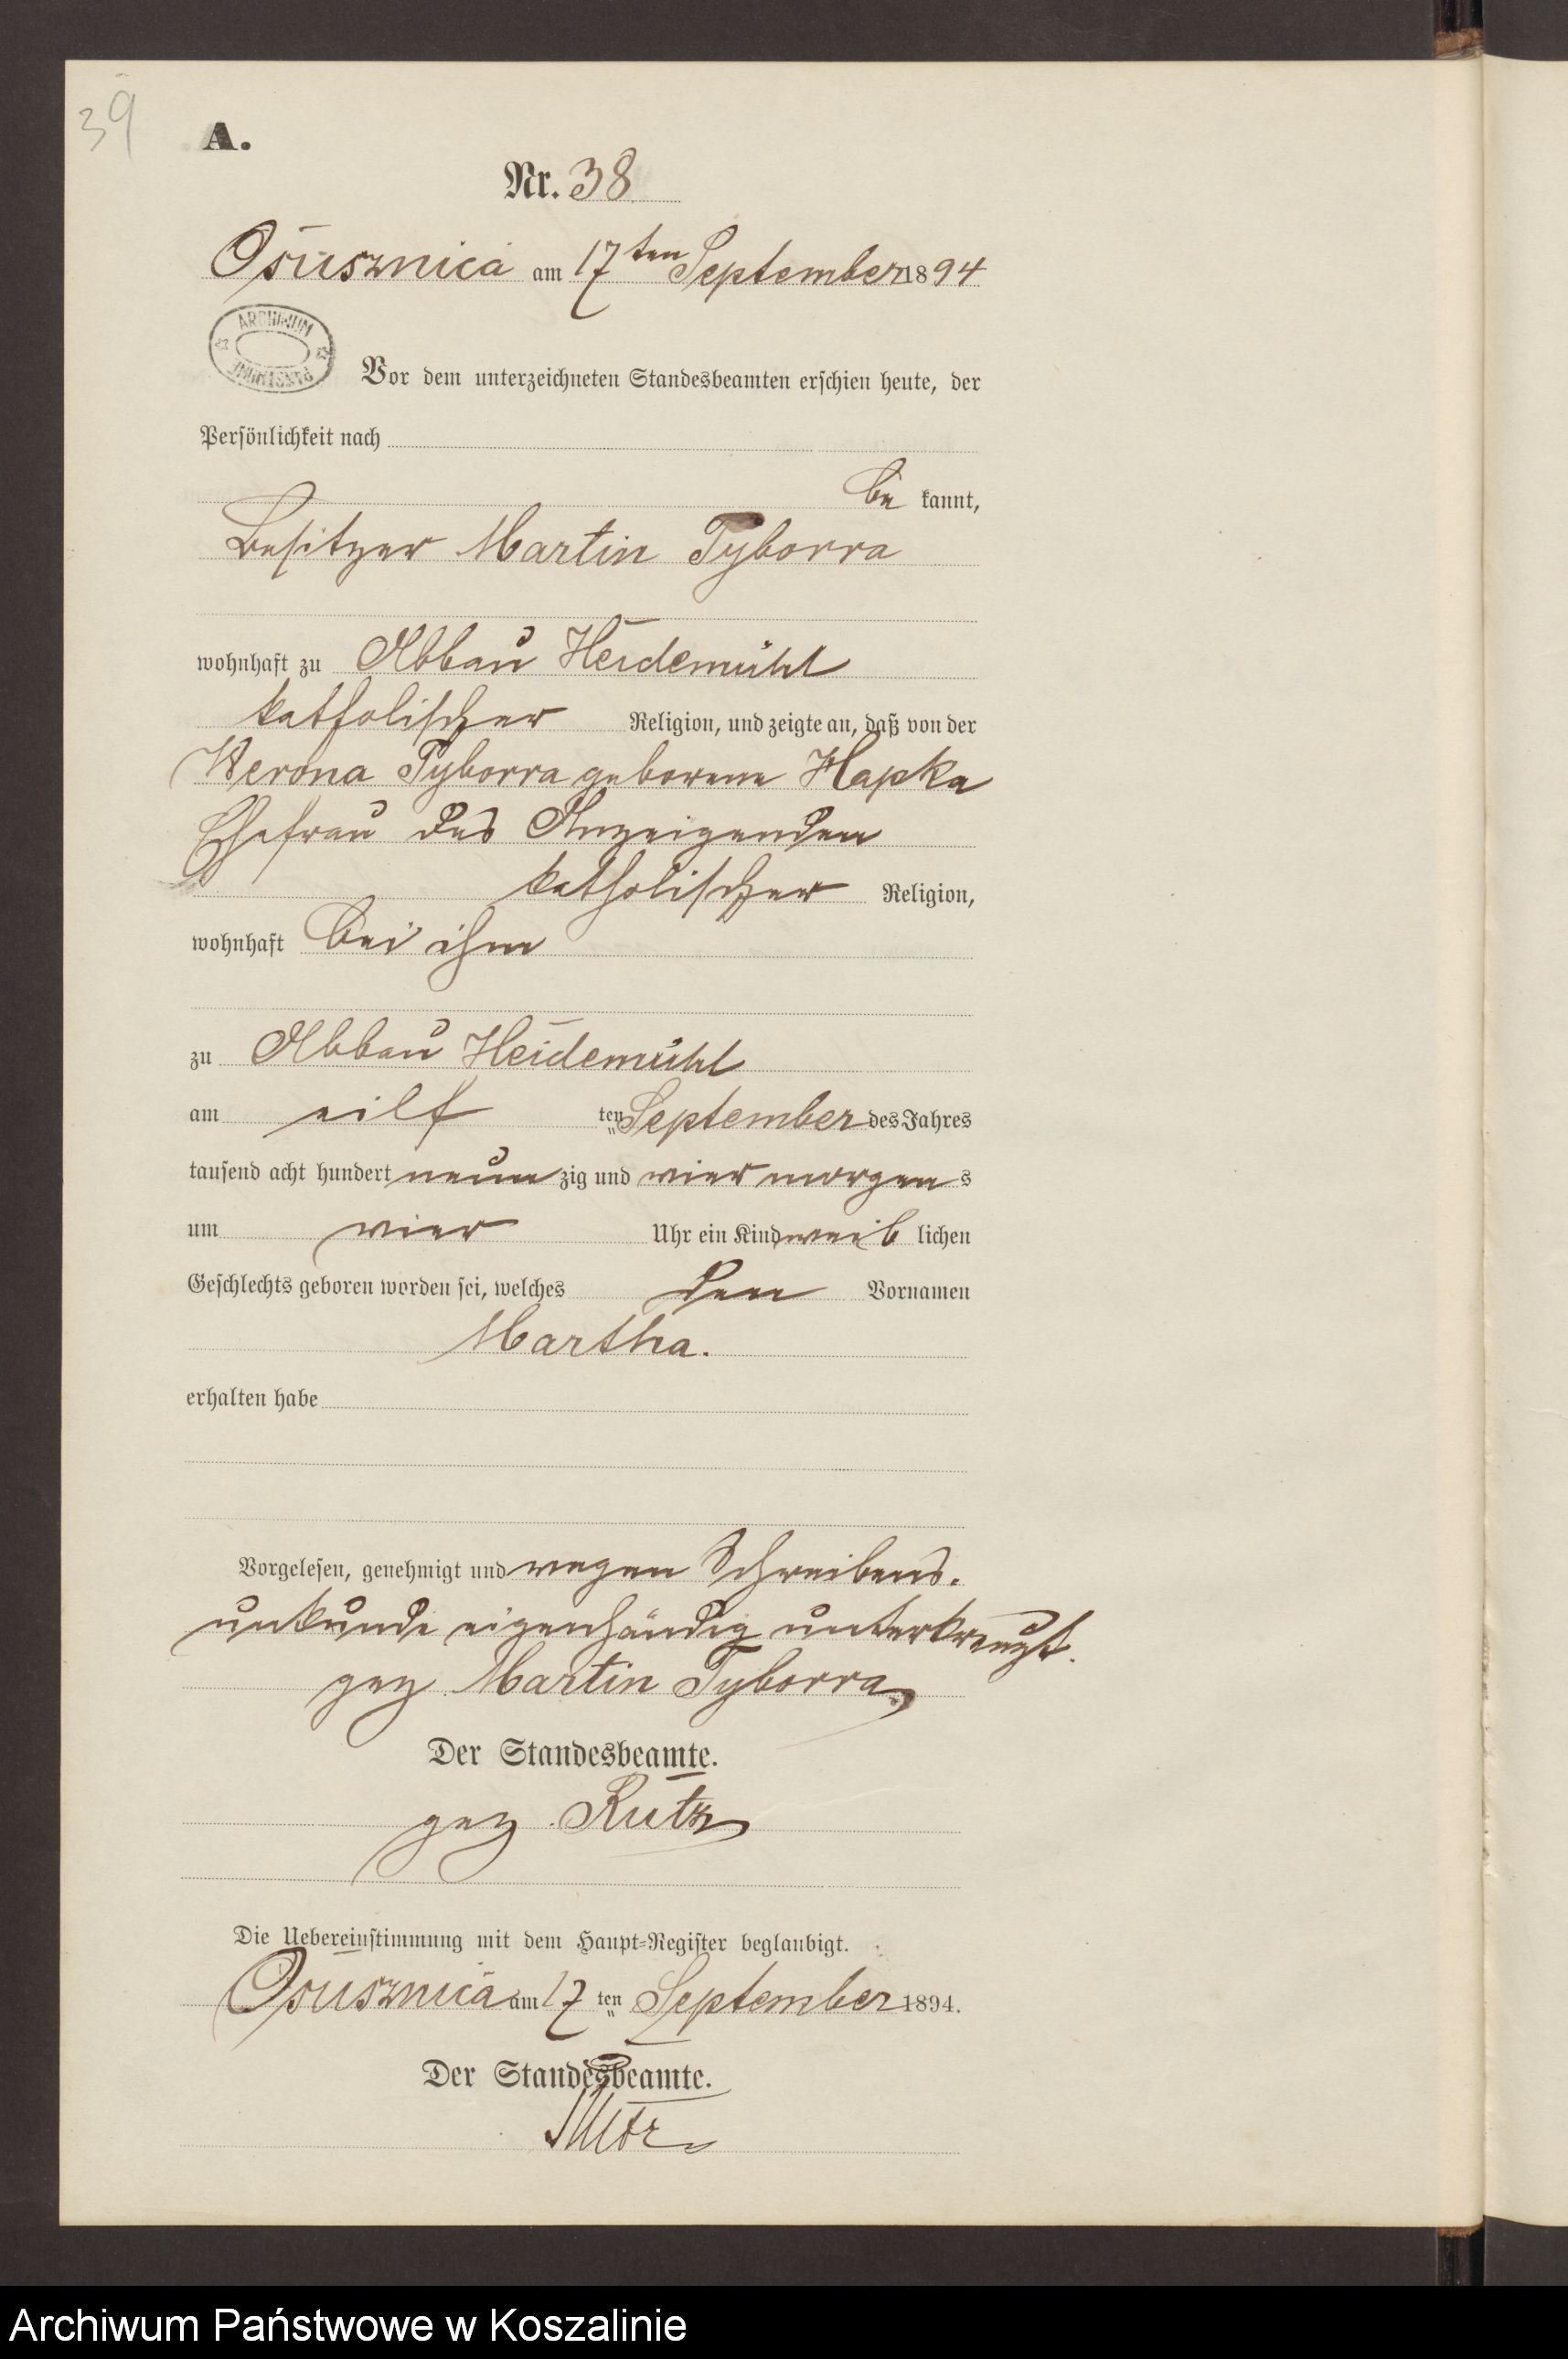 39
A.
Nr. 38
Osusznica am 17ten September 1894
ARCHIWUM
Vor dem unterzeichneten Standesbeamten erschien heute, der
Persönlichkeit nach
be kannt,
Besitzer Martin Tyborra
wohnhaft zu Abbau Heidemühl
katholischer Religion, und zeigte an, daß von der
Werona Tyborra geborene Hapka
Ehefrau des Anzeigenden
katholischer Religion,
wohnhaft bei ihm
zu Abbau Heidemühl
am eilf ten September des Jahres
tausend acht hundert neun zig und vier morgens
um vier Uhr ein Kind weib lichen
Geschlechts geboren worden sei, welches den Vornamen
Martha.
erhalten habe
Vorgelesen, genehmigt und wegen Schreibens.
unkunde eigenhändig unterkreuzt.
gez Martin Tyborra
Der Standesbeamte.
gez Rutz
Die Uebereinstimmung mit dem Haupt-Register beglaubigt.
Osusznica am 17 ten September 1894.
Der Standesbeamte.
Rutz
Archiwum Państwowe w Koszalinie